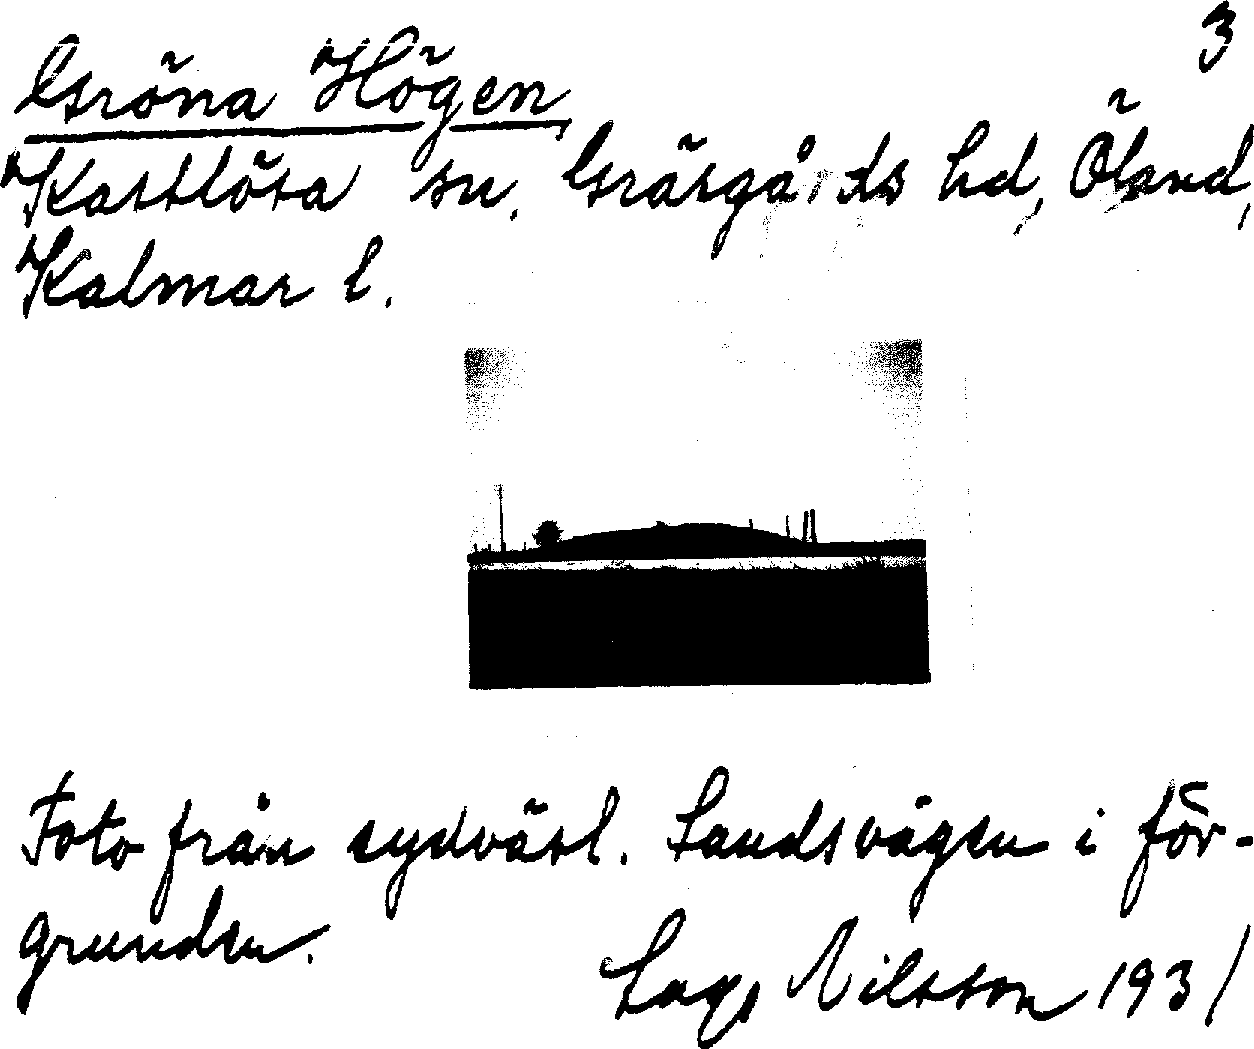 3
Gröna Högen
Kastlösa sn, Gräsgårds hd, Öland,
Kalmar l.
Foto från sydväst. Landsvägen i för-
grunden.
Lage Nilsson 1931